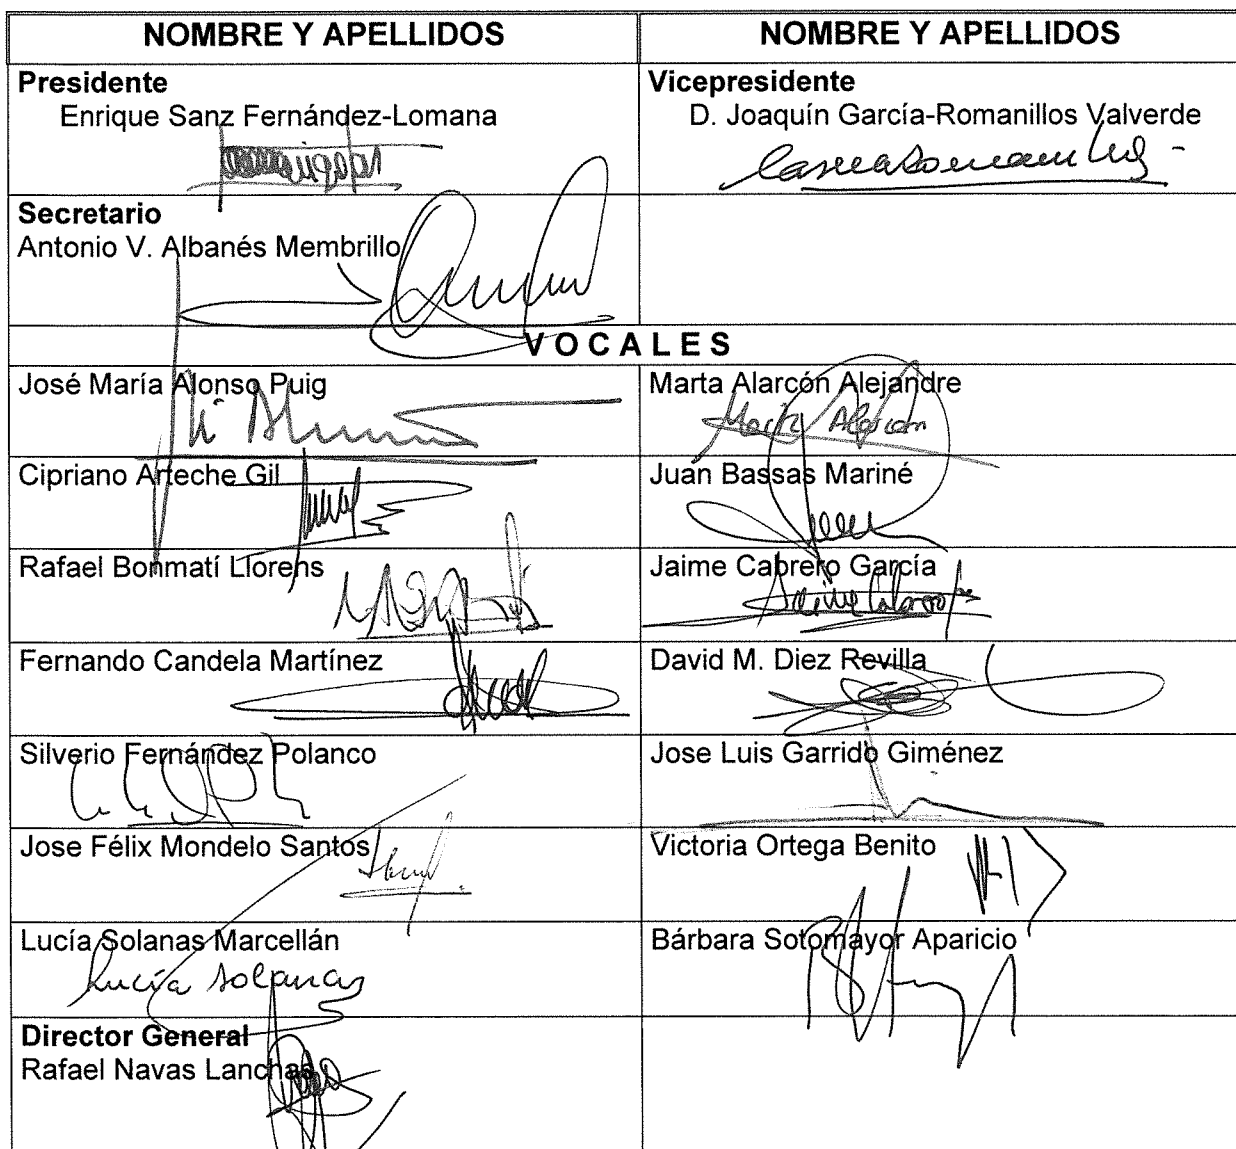 NOMBRE Y APELLIDOS
NOMBRE Y APELLIDOS
Presidente
Enrique Sanz Fernández-Lomana
Vicepresidente
D. Joaquín García-Romanillos Valverde
Secretario
Antonio V. Albanés Membrillo
VOCALES
José María Alonso Puig
Marta Alarcón Alejandre
Marta Alarcón
Cipriano Arteche Gil
Juan Bassas Mariné
Rafael Bonmatí Llorens
Jaime Cabrero García
Jaime Cabrero
Fernando Candela Martínez
David M. Diez Revilla
Silverio Fernández Polanco
Jose Luis Garrido Giménez
Jose Félix Mondelo Santos
Victoria Ortega Benito
Lucía Solanas Marcellán
Lucía Solanas
Bárbara Sotomayor Aparicio
Director General
Rafael Navas Lanchas